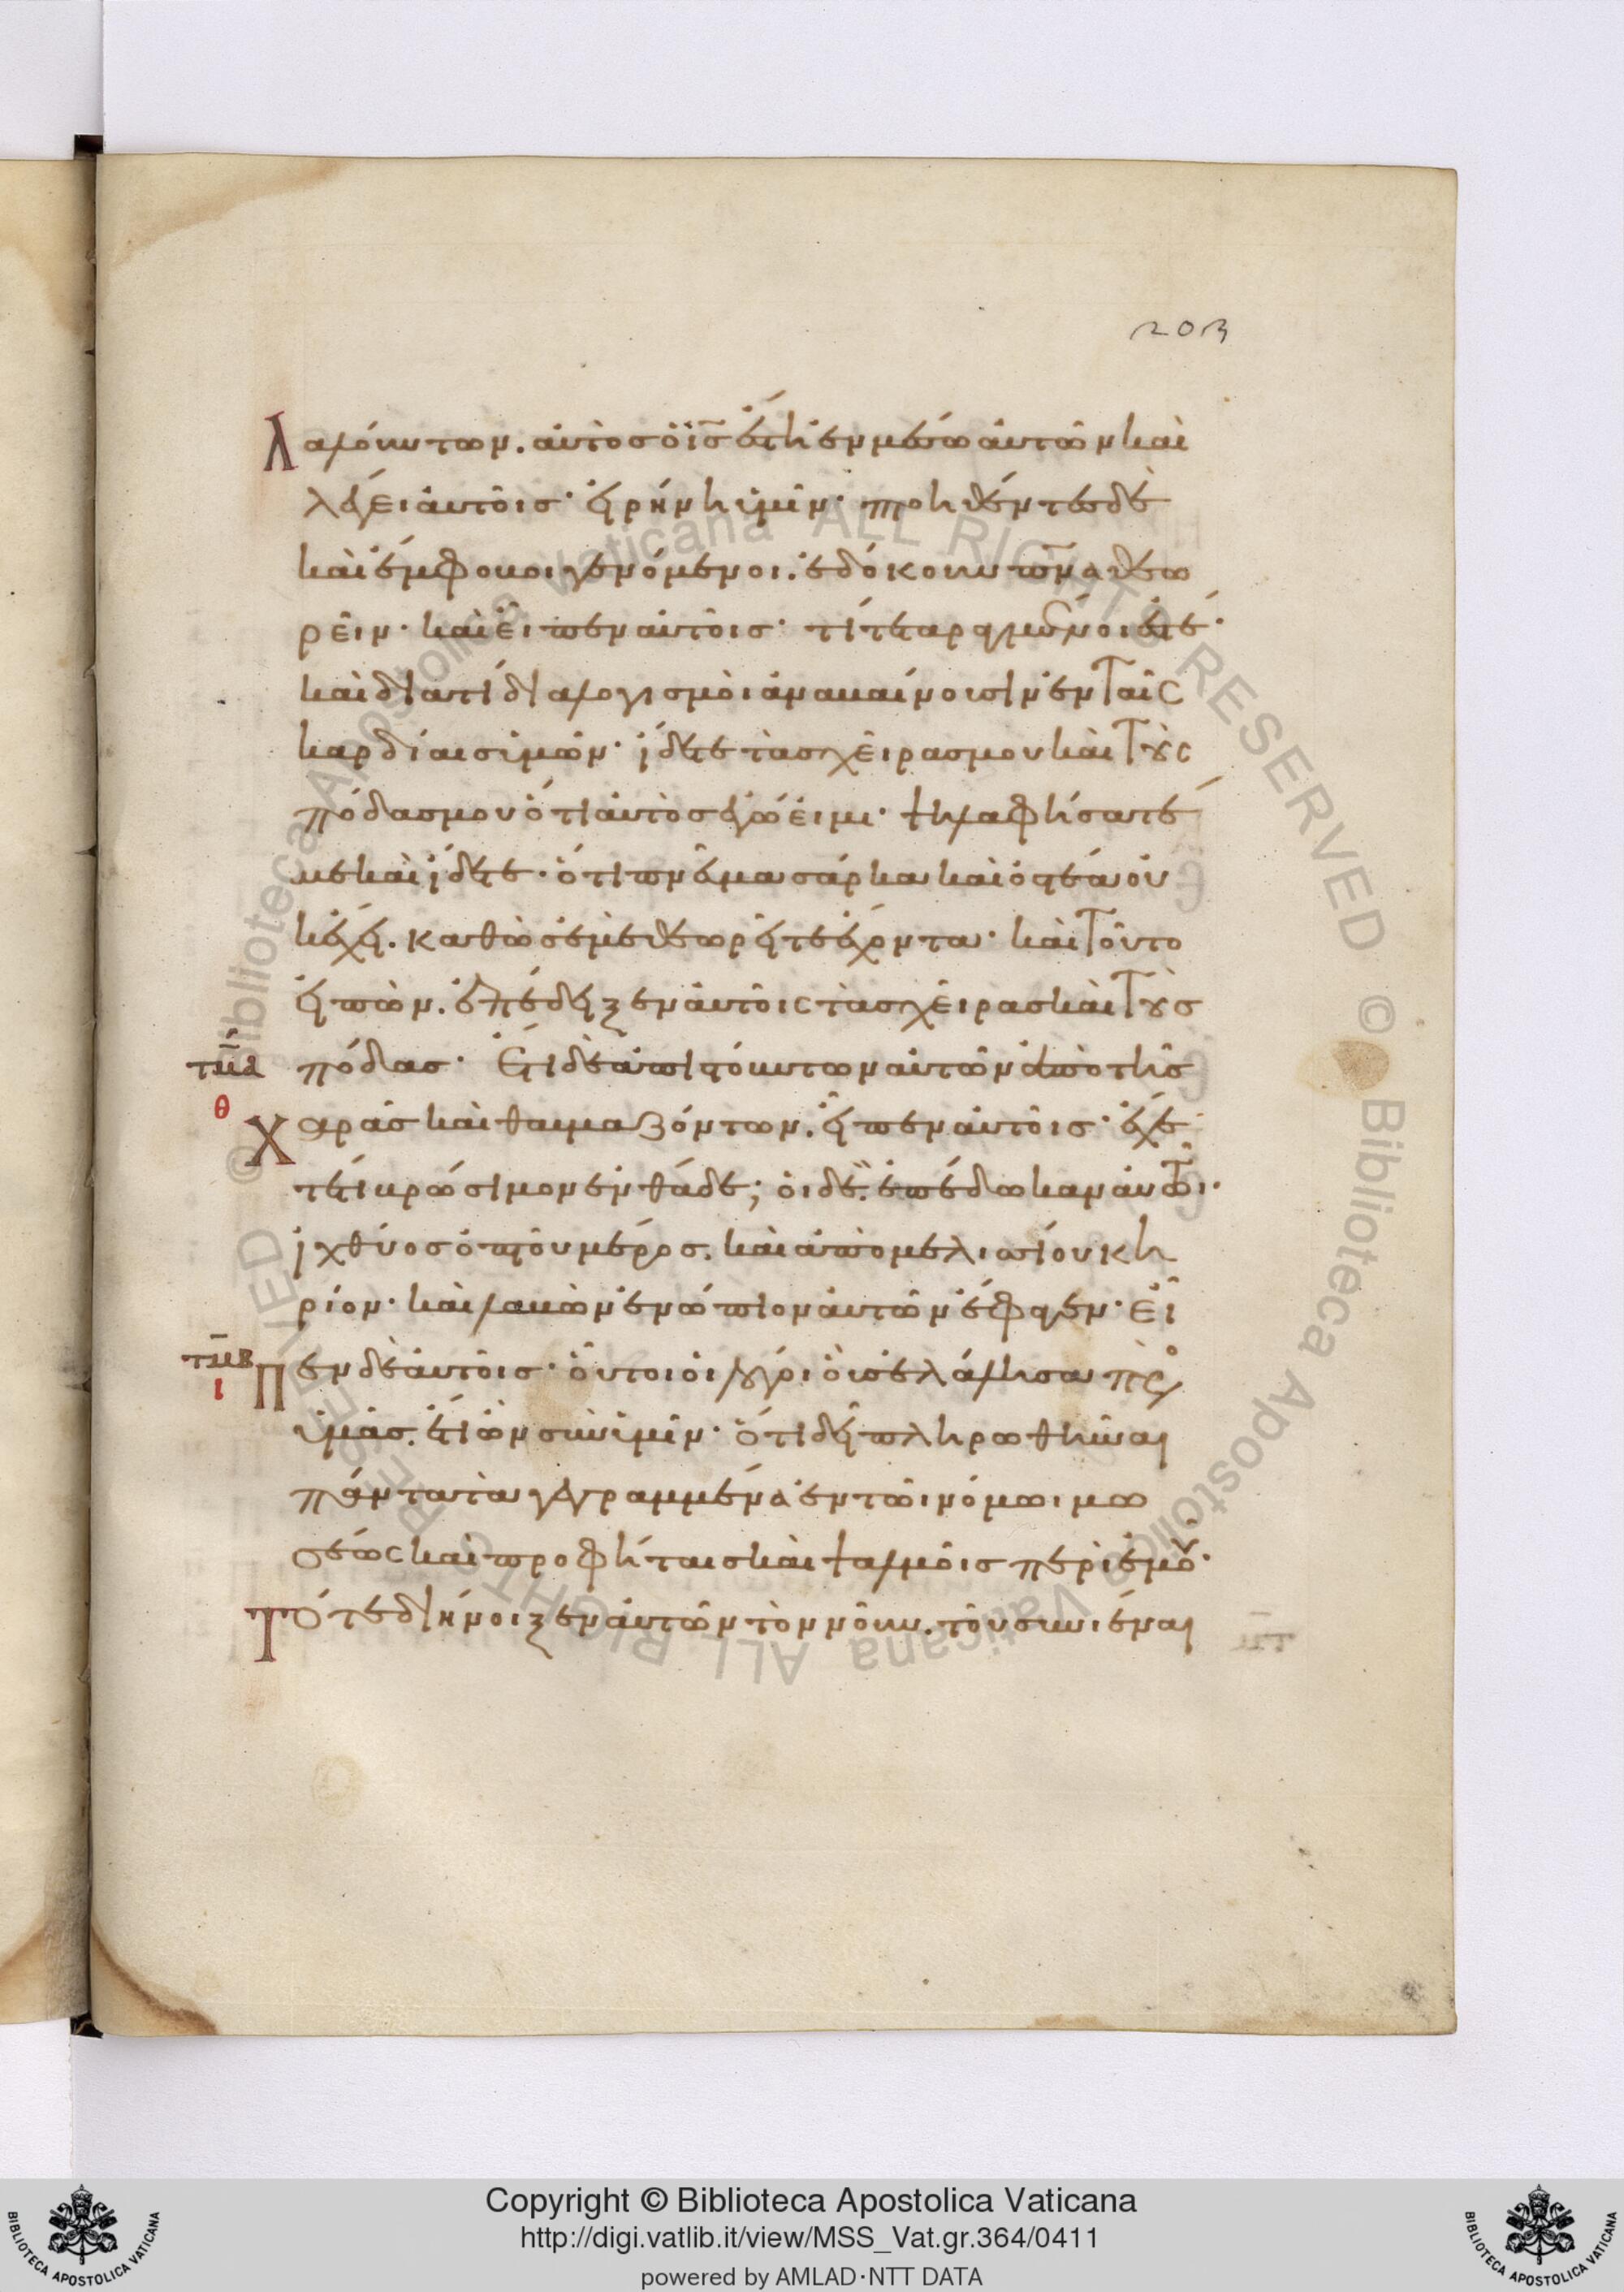 203
Λαλούντων. αὐτὸς ὁ ις ἔστη ἐν μέσω αὐτῶν καὶ
λέγει αὐτοῖς· εἰρήνη ὑμῖν· πτοηθέντες δὲ
καὶ ἔμφοβοι γενόμενοι. ἐδόκουν πνα θεω
ρεῖν· καὶ εἶπεν αὐτοῖς· τί τεταραγμένοι ἐστέ·
καὶ διατί διαλογισμοὶ ἀναβαίνουσιν ἐν ταῖς
καρδίαις ὑμῶν· ἴδετε τὰς χεῖρας μου καὶ τοὺς
πόδας μου ὅτι αὐτὸς ἐγώ εἰμι· ψηλαφήσατέ
με καὶ ἴδετε· ὅτι πνεῦμα σάρκα καὶ ὀστέα οὐ
κ ἔχει. καθὼς ἐμὲ θεωρεῖτε ἔχοντα· καὶ τοῦτο
εἰπὼν. ἐπέδειξεν αὐτοῖς τὰς χεῖρας καὶ τοὺς
τμα πόδας· Ἔτι δὲ ἀπιστούντων αὐτῶν ἀπὸ τῆς
θ Χαρᾶς καὶ θαυμαζόντων. εἶπεν αὐτοῖς· ἔχε
τέ τι βρώσιμον ἐνθάδε; οἱ δὲ. ἐπέδωκαν αὐτῶι·
ἰχθύος ὀπτοῦ μέρος. καὶ ἀπὸ μελισσίου κη
ρίον· καὶ λαβὼν ἐνώπιον αὐτῶν ἔφαγεν· Εἶ
τμβ ι Πεν δὲ αὐτοῖς· οὗτοι οἱ λόγοι οὓς ἐλάλησα πρὸς
ὑμᾶς. ἔτι ὢν σὺν ὑμῖν· ὅτι δεῖ πληρωθῆναι
πάντα τὰ γεγραμμένα ἐν τῶι νόμωι μω
σέως καὶ προφήταις καὶ ψαλμοῖς περὶ ἐμοῦ·
Τότε διήνοιξεν αὐτῶν τὸν νοῦν. τοῦ συνιέναι
Copyright © Biblioteca Apostolica Vaticana
http://digi.vatlib.it/view/MSS_Vat.gr.364/0411
powered by AMLAD·NTT DATA